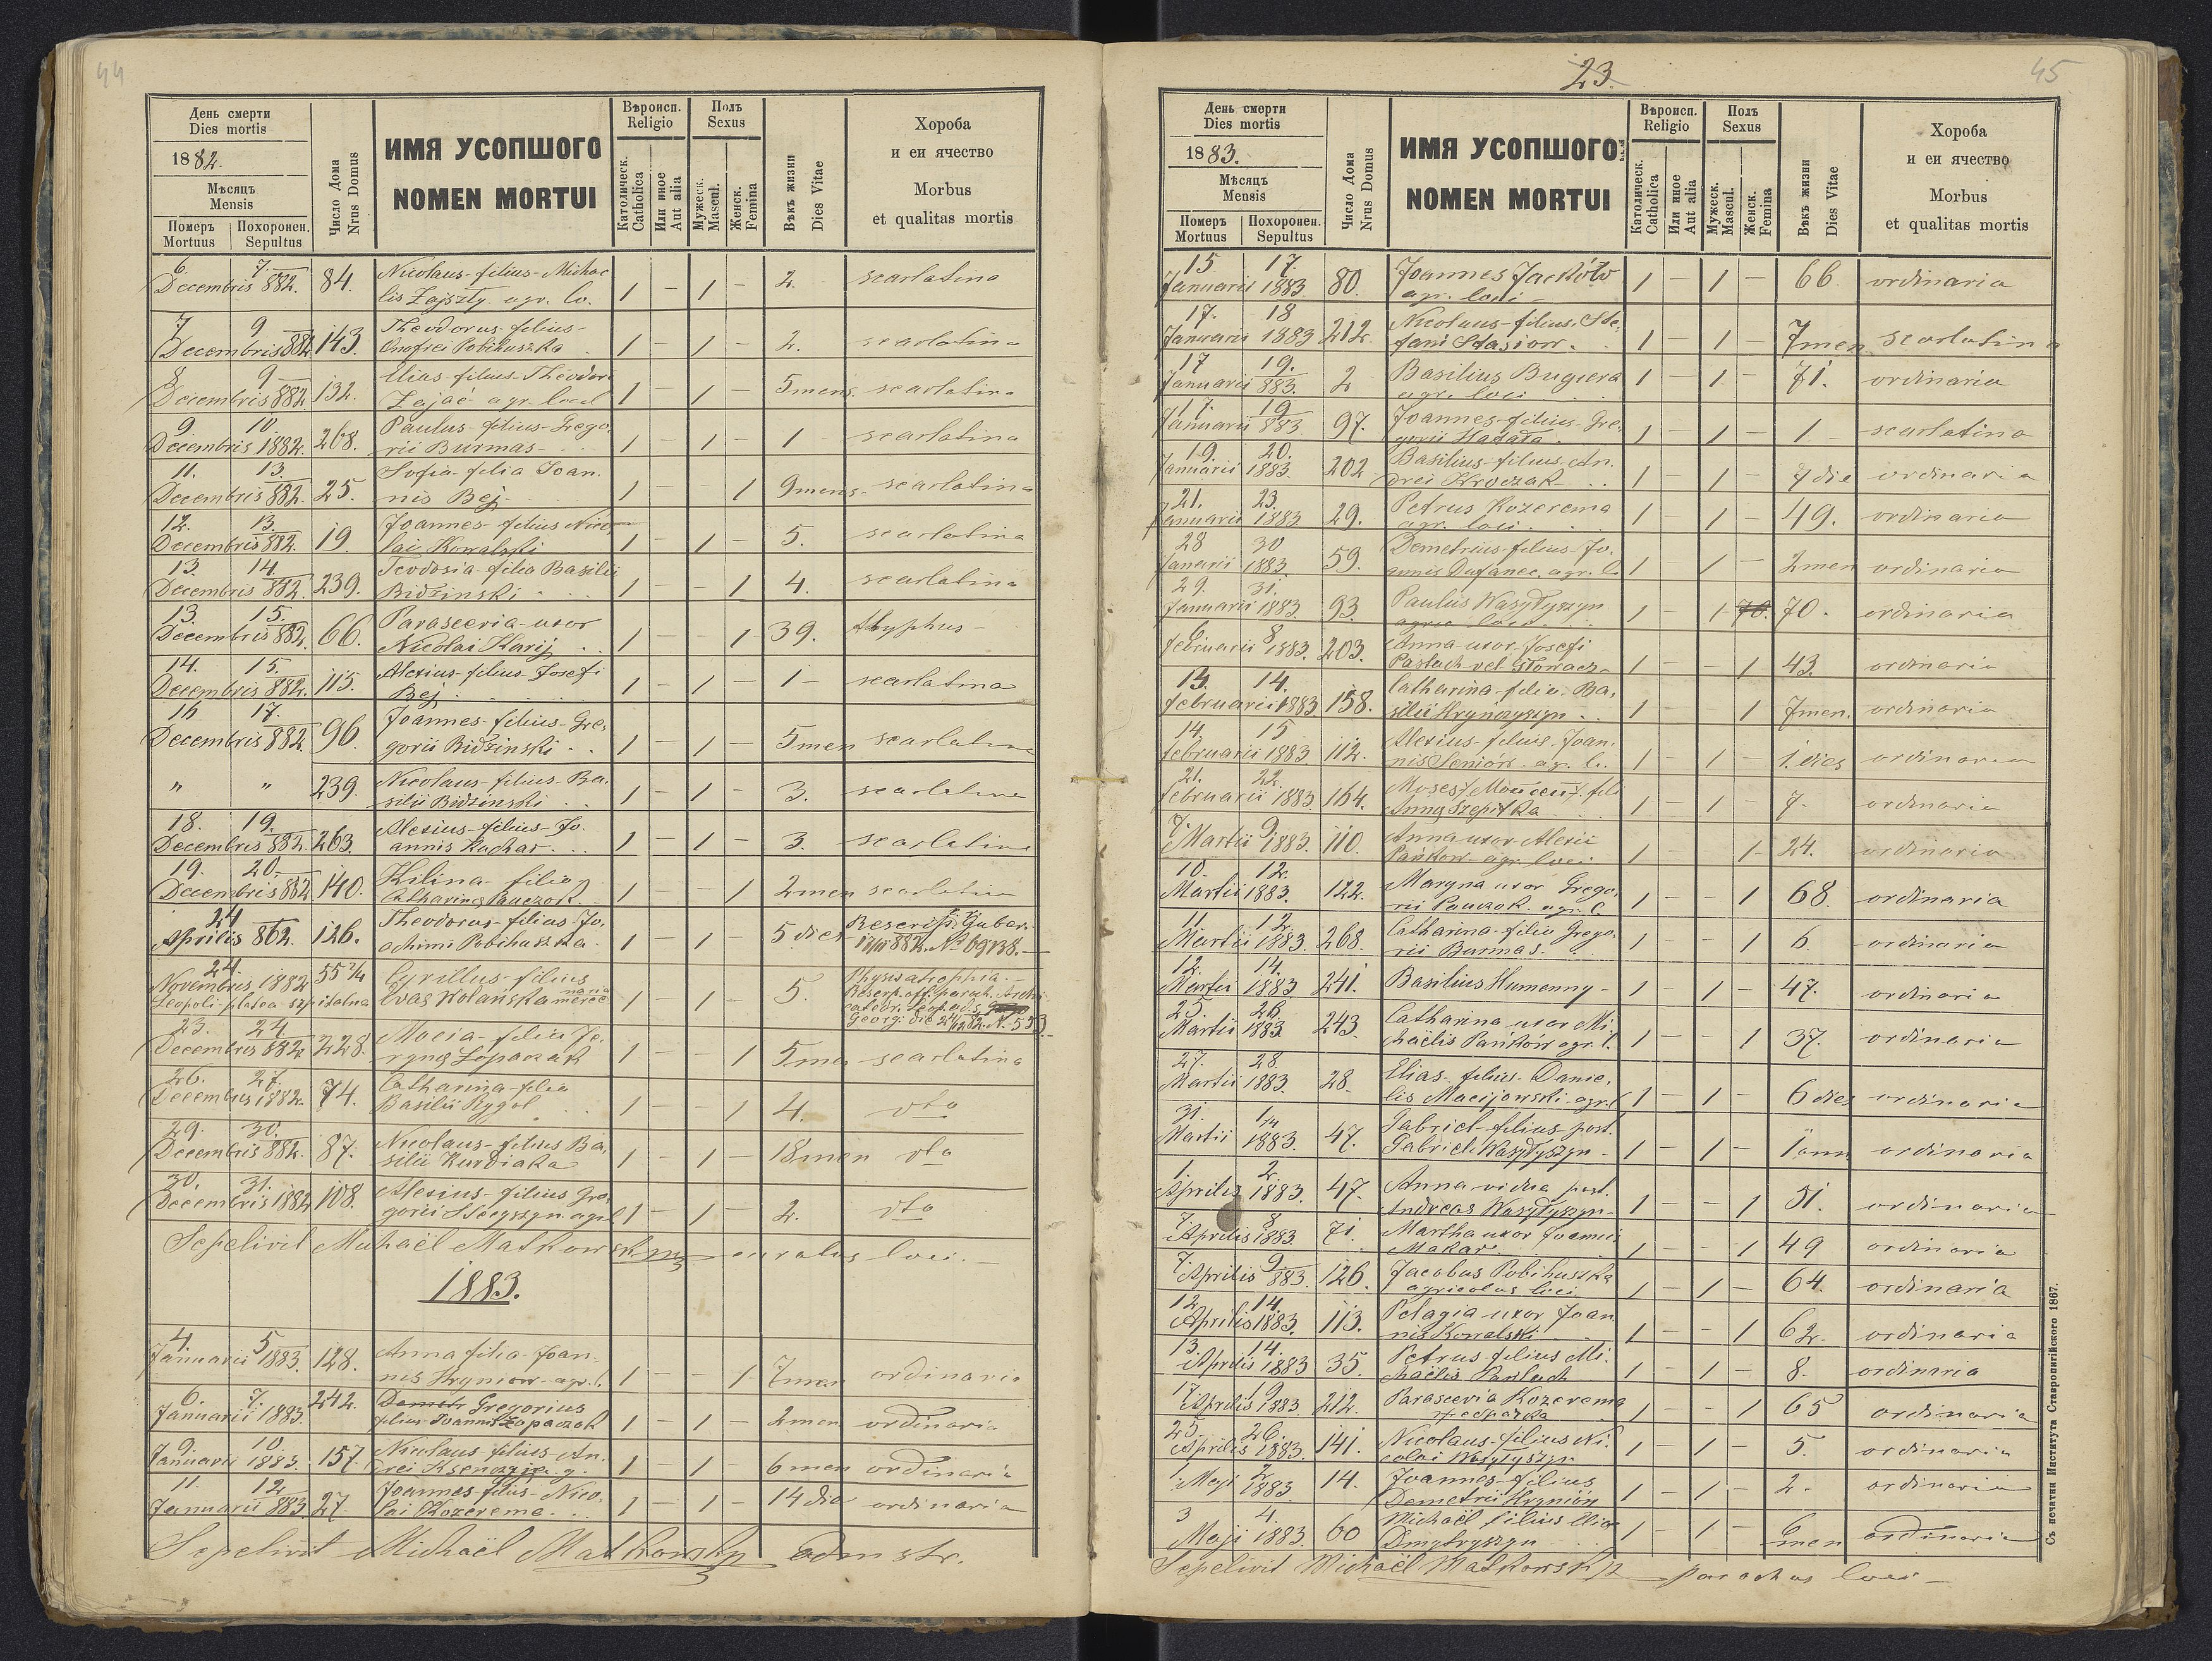 44
День смерти
Dies mortis
1882.
Мѣсяць
Mensis
Померъ Похоронен.
Mortuus Sepultus
Число Дома
Nrus Domus
ИМЯ УСОПШОГО
NOMEN MORTUI
Вѣроисп.
Religio
Католическ.
Catholica
Или иное
Aut alia
Полъ
Sexus
Мужеск.
Mascul.
Женск.
Femina
Вѣкъ жизни
Dies Vitae
Хороба
и еи ячество
Morbus
et qualitas mortis
6. 7. Nicolaus-filius-Michae
Decembris 882. 84. lis Zajszły. agr. lo. 1 – 1 – 2. scarlatina
7 9 Theodorus-filius-
Decembris 882 143. Onofrei Pobihuszka 1 – 1 – 2. scarlatina
8 9 Elias filius-Theodori
Decembris 882 132. Zajac agr. loci 1 – 1 – 5 mens. scarlatina
9. 10. Paulus-filius-Grego,
Decembris 1882. 268. rii Burmas- 1 – 1 – 1 scarlatina
11. 13 Sofia-filia Joan.
Decembris 882. 25. nis Bej. 1 – – 1 9 mens. scarlatina
12. 13. Joannes-filius Nico,
Decembris 882. 19. lai Kowalski 1 – 1 – 5. scarlatina
13. 14. Teodosia-filia Basilii
Decembris 882. 239. Bidzinski 1 – – 1 4. scarlatina
13. 15. Parascevia-uxor
Decembris 882. 66. Nicolai Karij 1 – – 1 39. thyphus-
14. 15. Alexius-filius-Josefi
Decembris 882. 115. Bej 1 – 1 – 1 – scarlatina
16 17. Joannes-filius-Gre,
Decembris 882. 96. gorii Bidzinski 1 – 1 – 5 men scarlatina
" " 239. Nicolaus-filius-Ba,
silii Bidzinski 1 – 1 – 3. scarlatina
18. 19. Alexius-filius-Jo.
Decembris 882. 263. annis Kuchar. 1 – 1 – 3. scarlatina
19. 20. Kilina-filia
Decembris 882 140. Catharina Pauczok 1 – – 1 2 men scarlatina
24 Theodorus-filius-Jo,
Aprilis 862. 126. achimi Pobihuszka 1 – 1 – 5 dies Rescript. Guber.
882. No 69138.
24. 55 2/4 Cyrillus-filius
Novembris 1882 Evas Kolańska 1 – 1 – 5.
Leopoli platea szpitalna
23. 24 Maria-filia Je,
Decembris 882. 228. ryna Łopaczak 1 – – 1 5 men scarlatina
26. 27. Catharina-filia
Decembris 1882. 74. Basilii Rygol 1 – – 1 4. dto
29. 30. Nicolaus-filius Ba,
Decembris 882. 87. silii Kurdiaka 1 – 1 – 18 men dto
30. 31. Alexius-filius Gre,
Decembris 1882 108. gorii 1 – 1 – 2. dto
Sepelivit Michaël Matkowsky curatus loci.
1883.
4. 5 Anna filia-Joan-
Januarii 1883. 128. nis Hryniow-agr. l. 1 – – 1 7 men ordinaria
6. 7. 242. Gregorius
Januarii 1883. filius Joannis Łopaczak 1 – 1 – 2 men ordinaria
9. 10. Nicolaus-filius-An,
Januarii 1883. 157. drei 1 – 1 – 6 men ordinaria
11. 12 Joannes-filius-Nico,
Januarii 883. 27. lai Kozerema. 1 – 1 – 14 die ordinaria
Sepelivit Michaël Matkowsky admstr.
23.
45
День смерти
Dies mortis
1883.
Мѣсяць
Mensis
Померъ Похоронен.
Mortuus Sepultus
Число Дома
Nrus Domus
ИМЯ УСОПШОГО
NOMEN MORTUI
Вѣроисп.
Religio
Католическ.
Catholica
Или иное
Aut alia
Полъ
Sexus
Мужеск.
Mascul.
Женск.
Femina
Вѣкъ жизни
Dies Vitae
Хороба
и еи ячество
Morbus
et qualitas mortis
15 17. Joannes Jacków
Januarii 1883 80. agr. loci- 1 – 1 – 66. ordinaria
17. 18 Nicolaus-filius. Ste,
Januarii 1883 212. fani Stasiow. 1 – 1 – 7 men scarlatina
17 19. Basilius Bugiera
Januarii 883. 2 agr. loci 1 – 1 – 71. ordinaria
17. 19 Joannes-filius-Gre,
Januarii 883 97. gorii 1 – 1 – 1 scarlatina
19. 20. Basilius-filius An.
Januarii 1883. 202 drei Kroczak 1 – 1 – 7 die ordinaria
21. 23. Petrus Kozerema
Januarii 1883. 29. agr. loci. 1 – 1 – 49. ordinaria
28 30 Demetrius-filius-Jo,
Januarii 1883. 59. annis Dufanec, agr. l. 1 – 1 – 2 men ordinaria
29. 31. Paulus Wasyłyszyn
Januarii 1883. 93. 1 – 1 70. 70. ordinaria
6 8 Anna-uxor-Josefi
februarii 1883. 203. Paslach vel 1 – – 1 43. ordinaria
13. 14. Catharina-filia-Ba,
februarii 1883 158. silii Hrynczyszyn 1 – – 1 7 men. ordinaria
14. 15 Alexius-filius-Joan,
februarii 1883 112. nis Seniow agr. l. 1 – 1 – 1. dies ordinaria
21. 22. Moses
februarii 1883. 164. Anna Szepitka 1 – 1 – 7. ordinaria
7. 9 Anna uxor Alexii
Martii 1883. 110. Pańkow agr. loci. 1 – – 1 24. ordinaria
10. 12. Maryna uxor Grego,
Martii 1883. 122. rii Pauczok. agr. l. 1 – – 1 68. ordinaria
11. 12. Catharina-filia Grego,
Martii 1883. 268. rii Burmas. 1 – – 1 6 ordinaria
12. 14. Basilius Humenny-
Martii 1883 241. 1 – 1 – 47. ordinaria
25. 26. Catharina uxor Mi,
Martii 1883. 243 chaëlis Pankow agr. l. 1 – – 1 37. ordinaria
27. 28. Elias-filius-Danie,
Martii 1883. 28. lis Macijowski-agr. l. 1 – 1 – 6 dies ordinaria
31. 1/4 Gabriel-filius-post.
Martii 1883. 47. Gabriel. Wasyłyszyn- 1 – 1 – 1 ann ordinaria
1. 2. Anna vidua post.
Aprilis 1883. 47. Andreas Wasyłyszyn- 1 – – 1 51. ordinaria
7. 8 Martha uxor Joannis
Aprilis 1883. 71. Makar. 1 – – 1 49 ordinaria
7. 9 Jacobus Pobihuszka
Aprilis 883. 126. agricolus loci 1 – 1 – 64. ordinaria
12. 14. Pelagia uxor Joan
Aprilis 1883. 113. nis Kowalski 1 – – 1 62. ordinaria
13. 14. Petrus-filius Mi.
Aprilis 1883 35. chaëlis Paslach 1 – 1 – 8. ordinaria
17 19 Parascevia Kozerema
Aprilis 1883 212. 1 – – 1 65 ordinaria
25. 26. Nicolaus-filius Ni.
Aprilis 1883. 141. colai Wasyłyszyn 1 – 1 – 5. ordinaria
1. 2 Joannes-filius
Maji 1883 14. Demetrii Hryniów 1 – 1 – 2- ordinaria
3 4. Michaël filius Eliae
Maji 1883. 60 Dmytryszyn 1 – 1 – 6 men ordinaria
Sepelivit Michaël Matkowsky parochus loci-
Съ печатни Института Ставропигійского 1867.